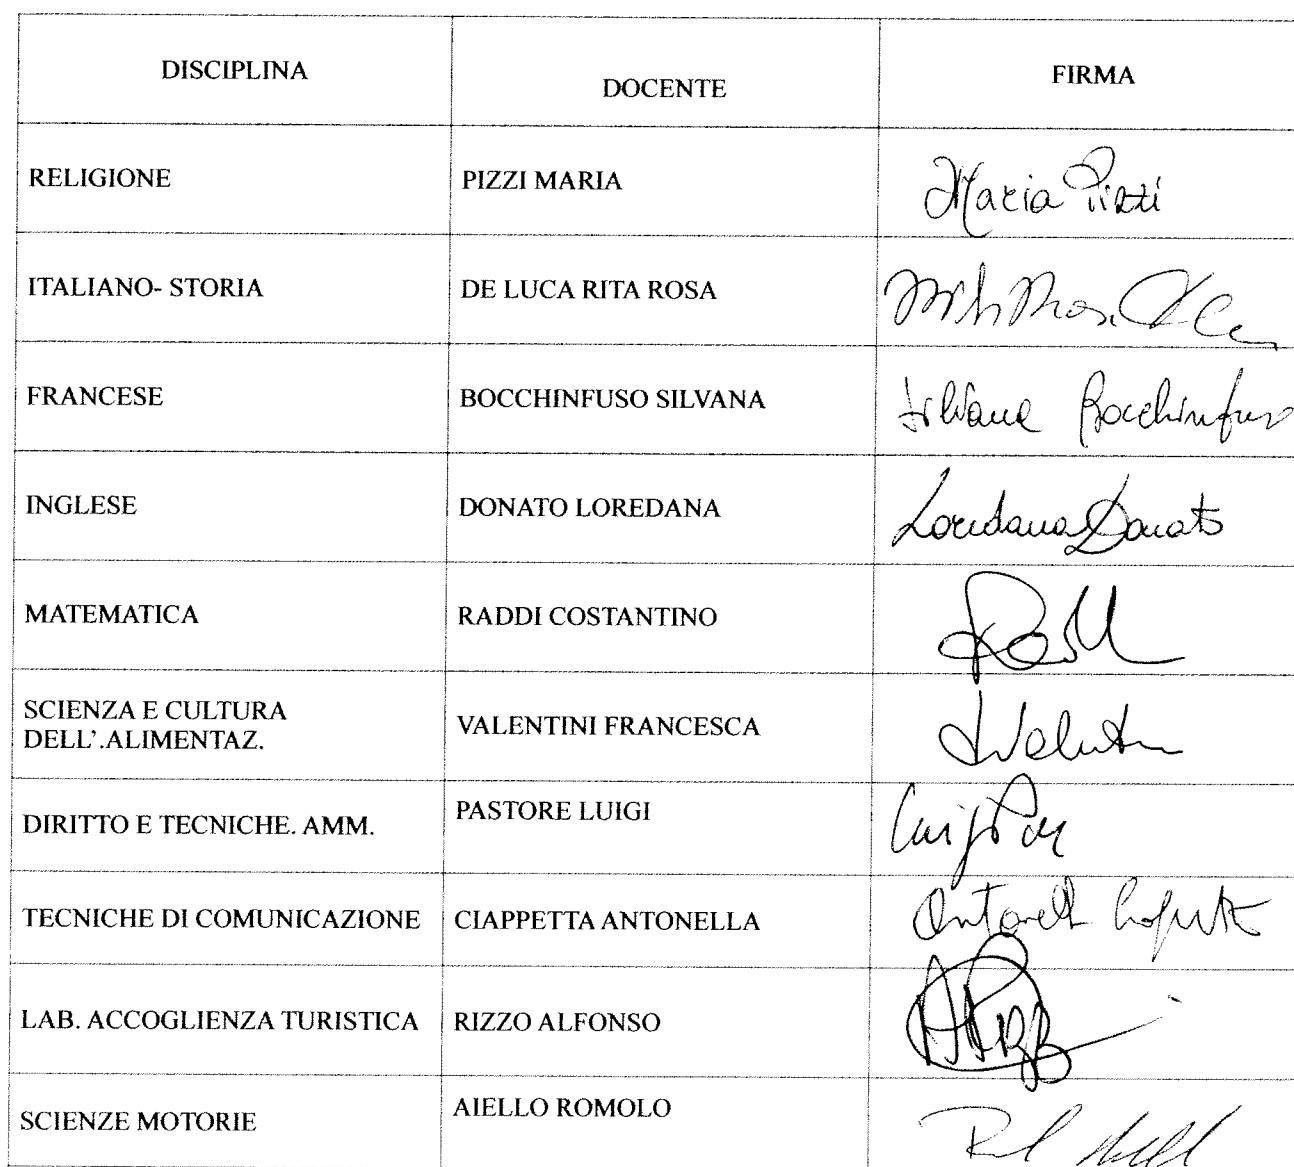 DISCIPLINA DOCENTE FIRMA
RELIGIONE PIZZI MARIA Maria Pizzi
ITALIANO- STORIA DE LUCA RITA ROSA
FRANCESE BOCCHINFUSO SILVANA Silvana Bocchinfuso
INGLESE DONATO LOREDANA Loredana Donato
MATEMATICA RADDI COSTANTINO
SCIENZA E CULTURA
DELL'.ALIMENTAZ. VALENTINI FRANCESCA
DIRITTO E TECNICHE. AMM. PASTORE LUIGI
TECNICHE DI COMUNICAZIONE CIAPPETTA ANTONELLA
LAB. ACCOGLIENZA TURISTICA RIZZO ALFONSO
SCIENZE MOTORIE AIELLO ROMOLO